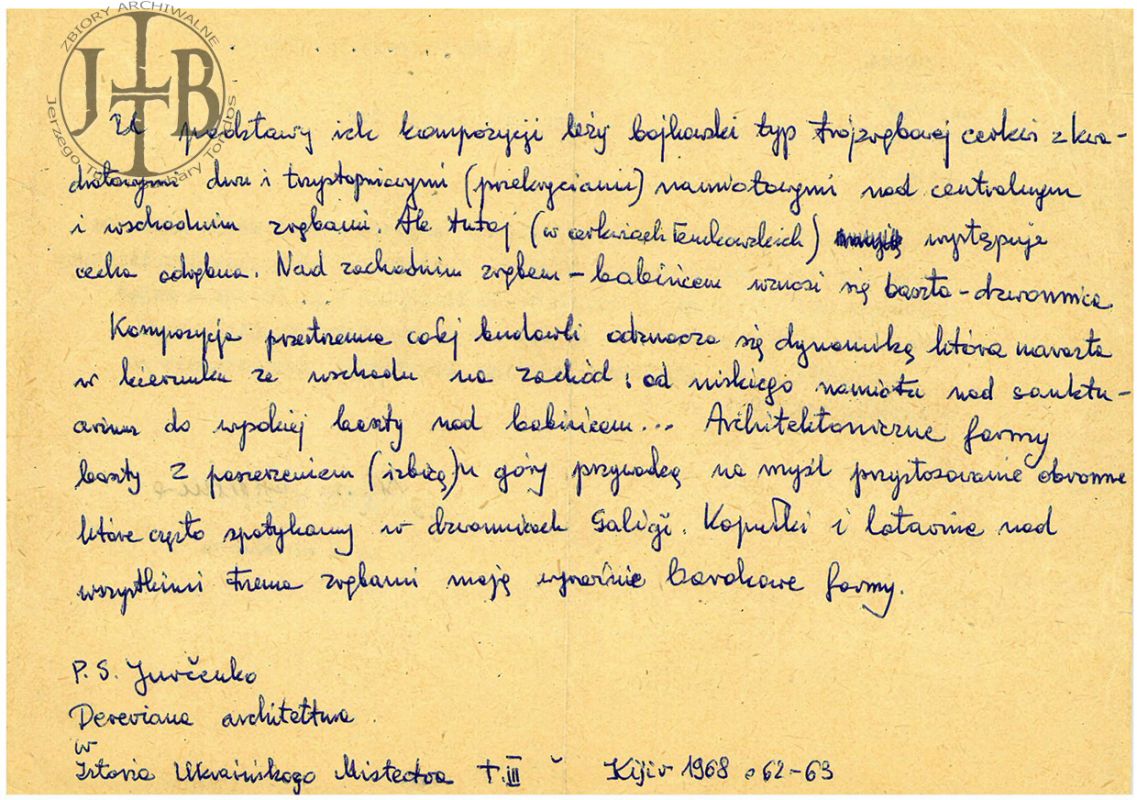 ZBIORY ARCHIWALNE
JTB
Jerzego Barbary Tondos
U podstawy ich kompozycji leży bojkowski typ trójzrębowej cerkwi z kwa-
dratowymi dwu i trzystopniowymi (przekryciami) namiotowymi nad centralnym
i wschodnim zrębami. Ale tutaj (w cerkwiach łemkowskich) występuje
cecha odrębna. Nad zachodnim zrębem – babińcem wznosi się baszta-dzwonnica
Kompozycja przestrzenna całej budowli odznacza się dynamiką która narasta
w kierunku ze wschodu na zachód: od niskiego namiotu nad sanktu-
arium do wysokiej baszty nad babińcem... Architektoniczne formy
baszty z poszerzeniem (izbicą) u góry przywodzą na myśl przystosowanie obronne
które często spotykamy w dzwonnicach Galicji. Kopułki i latarnie nad
wszystkimi trzema zrębami mają wyraźnie barokowe formy.
P. S. Jurčenko
Dereviana architettura
w
Istoria Ukraińskogo Mistectva T. III Kijiv 1968 s 62-63